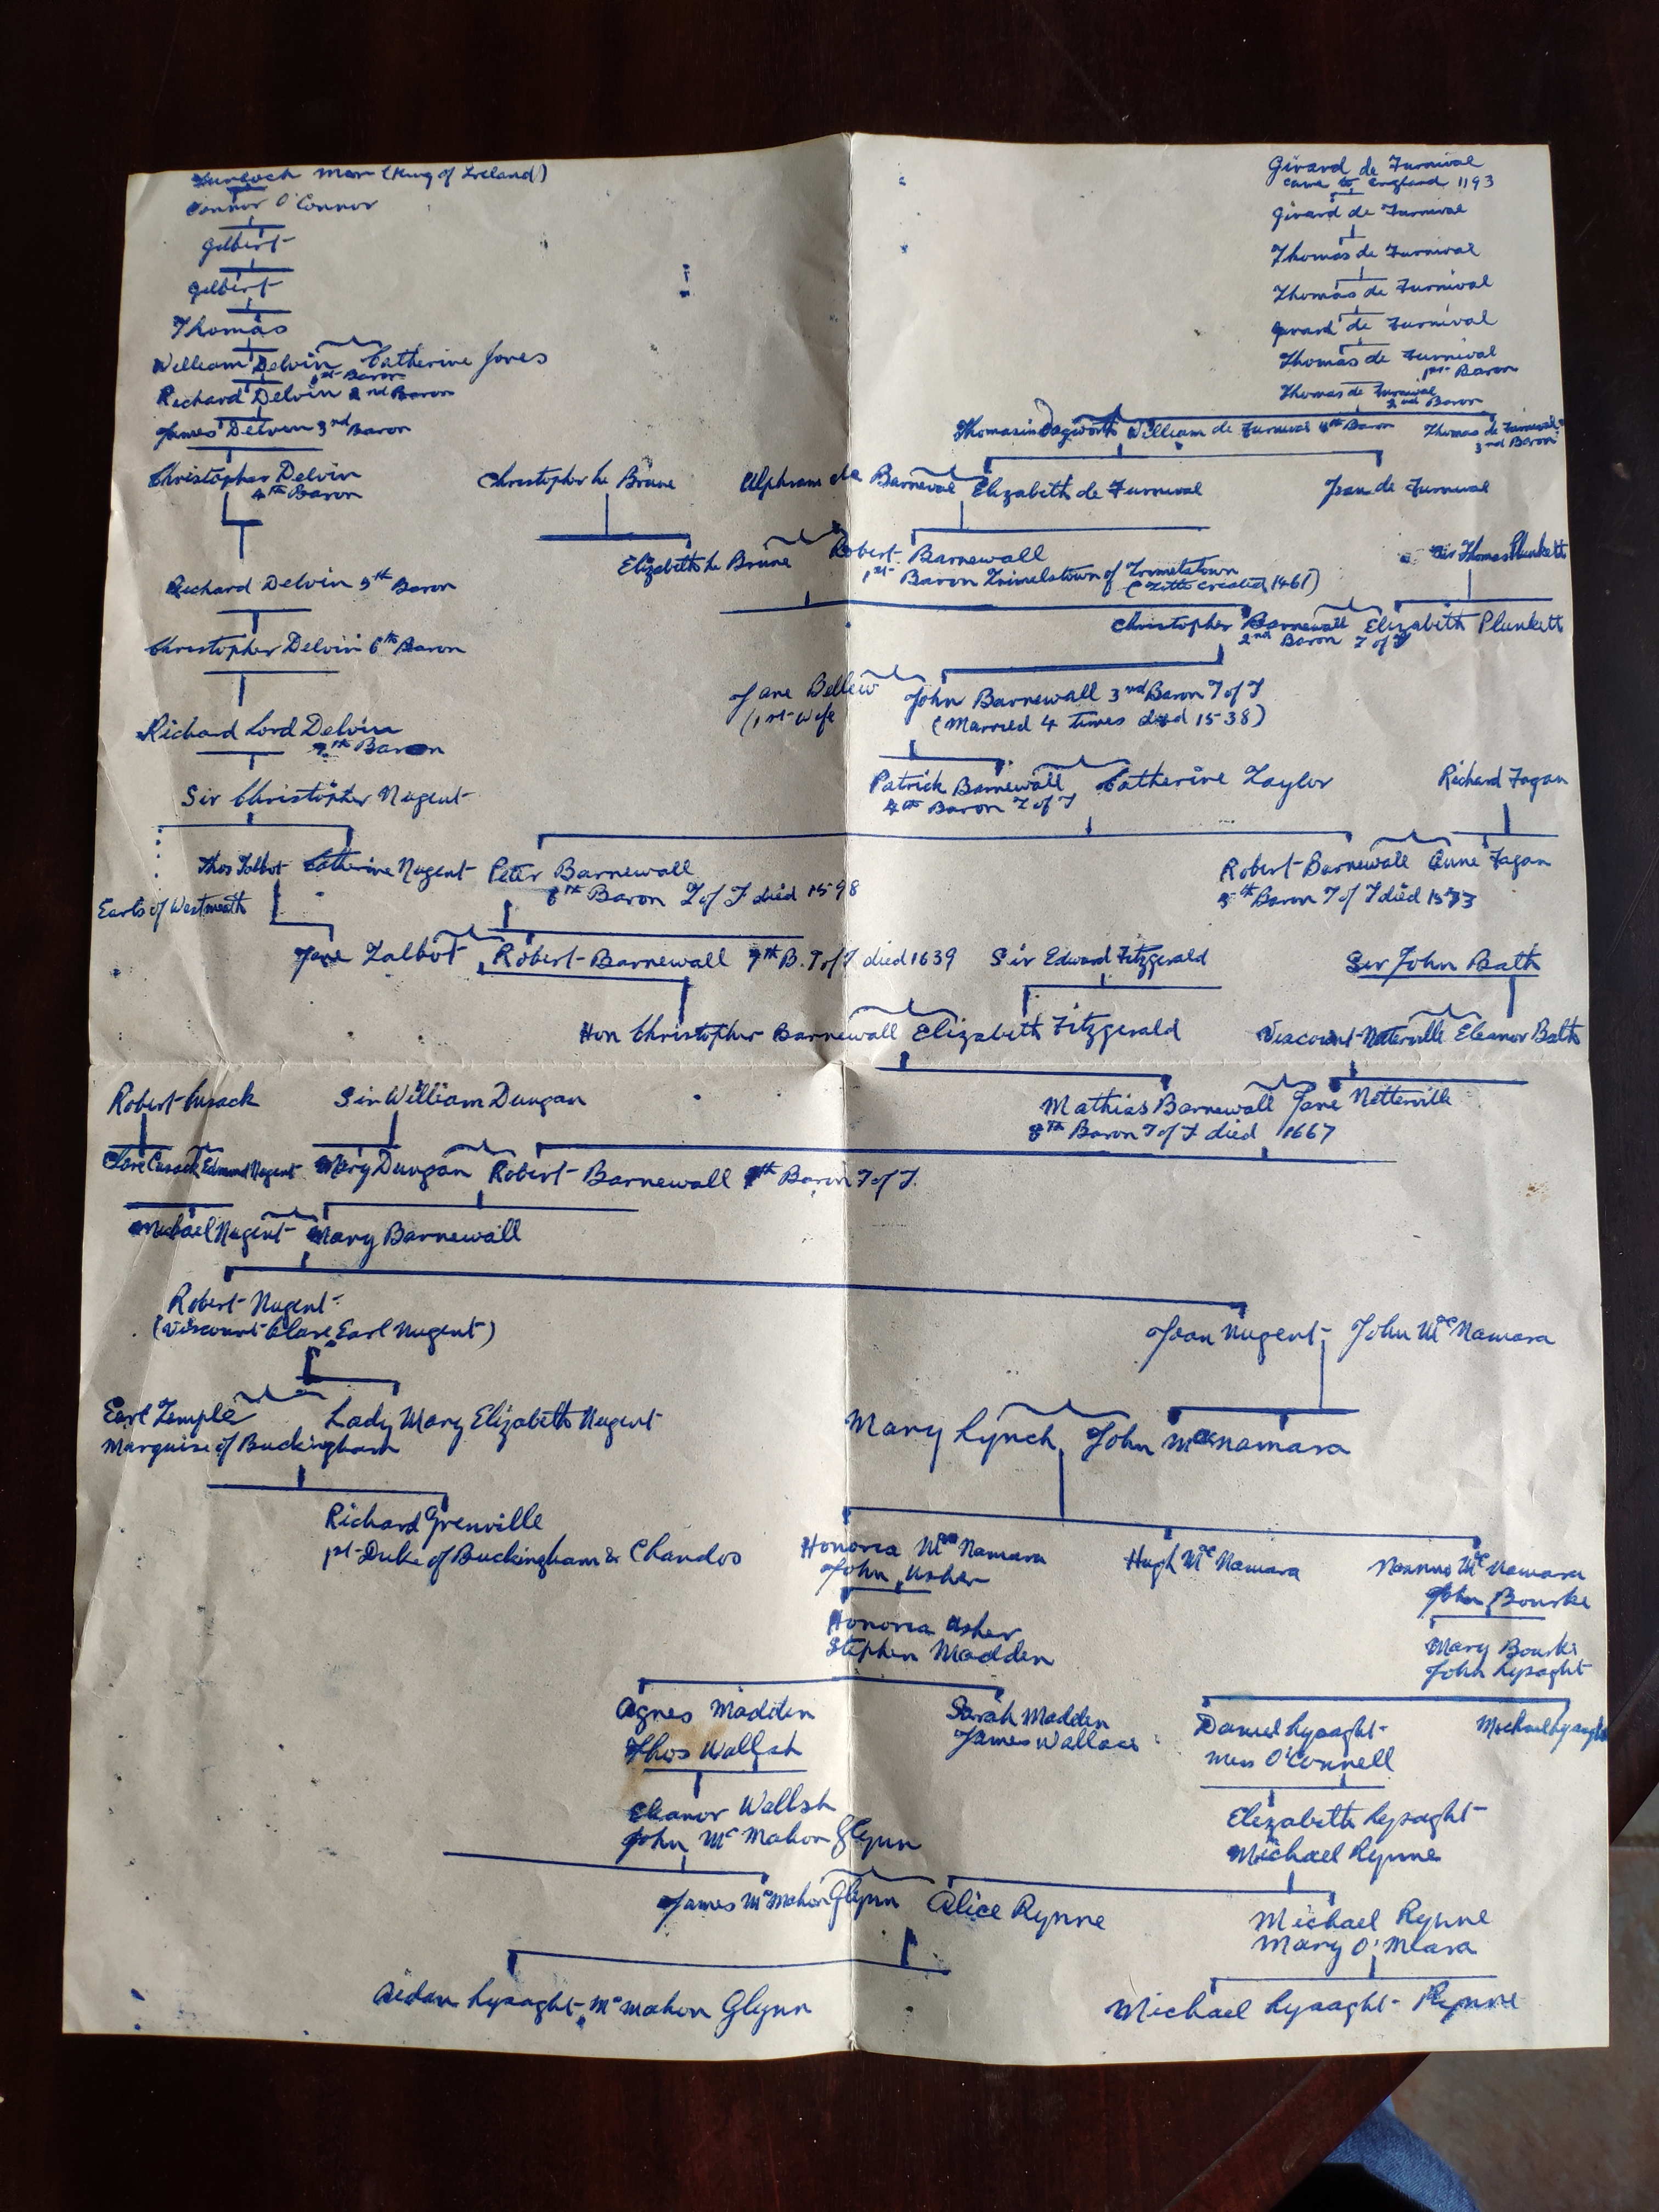 Turloch Mor (King of Ireland)
Connor O'Connor
Gilbert
Gilbert
Thomas
William Delvin Catherine Jones
1st Baron
Richard Delvin 2nd Baron
James Delvin 3rd Baron
Christopher Delvin
4th Baron
Richard Delvin 5th Baron
Christopher Delvin 6th Baron
Richard Lord Delvin
7th Baron
Sir Christopher Nugent
Girard de Furnival
came to England 1193
Girard de Furnival
Thomas de Furnival
Thomas de Furnival
Girard de Furnival
Thomas de Furnival
1st Baron
Thomas de Furnival
2nd Baron
Thomasin Dagworth William de Furnival 4th Baron Thomas de Furnival
3rd Baron
Christopher le Brune Ulphram de Barneval Elizabeth de Furnival Joan de Furnival
Elizabeth le Brune Robert Barnewall
1st Baron Trimelstown of Trimletstown
(Title created 1461)
Sir Thomas Plunkett
Christopher Barnewall Elizabeth Plunkett
2nd Baron T of T
Jane Bellew John Barnewall 3rd Baron T of T
(1st Wife (Married 4 times died 1538)
Patrick Barnewall Catherine Taylor Richard Fagan
4th Baron T of T
Thos Talbot Catherine Nugent Peter Barnewall
6th Baron T of T died 1598
Robert Barnewall Anne Fagan
5th Baron T of T died 1573
Earls of Westmeath
Jane Talbot Robert Barnewall 7th B. T of T died 1639 Sir Edward Fitzgerald Sir John Bath
Hon Christopher Barnewall Elizabeth Fitzgerald Viscount Netterville Eleanor Bath
Robert Cusack Sir William Dungan Mathias Barnewall Jane Netterville
8th Baron T of T died 1667
Clare Cusack Edmund Nugent Mary Dungan Robert Barnewall 9th Baron T of T.
Michael Nugent Mary Barnewall
Robert Nugent
(Viscount Clare, Earl Nugent)
Joan Nugent John McNamara
Earl Temple Lady Mary Elizabeth Nugent
Marquise of Buckingham
Mary Lynch John Macnamara
Richard Grenville
1st Duke of Buckingham & Chandos
Honorea McNamara Hugh McNamara McNamara
John Usher John Bourke
Honorea Usher Mary Bourke
Stephen Madden John Lysaght
Agnes Madden Sarah Madden Daniel Lysaght Michael Lysaght
Thos Wallsh James Wallace Miss O'Connell
Eleanor Wallsh Elizabeth Lysaght
John McMahon Glynn Michael Rynne
James McMahon Glynn Alice Rynne Michael Rynne
Mary O'Meara
Aidan Lysaght McMahon Glynn Michael Lysaght Rynne